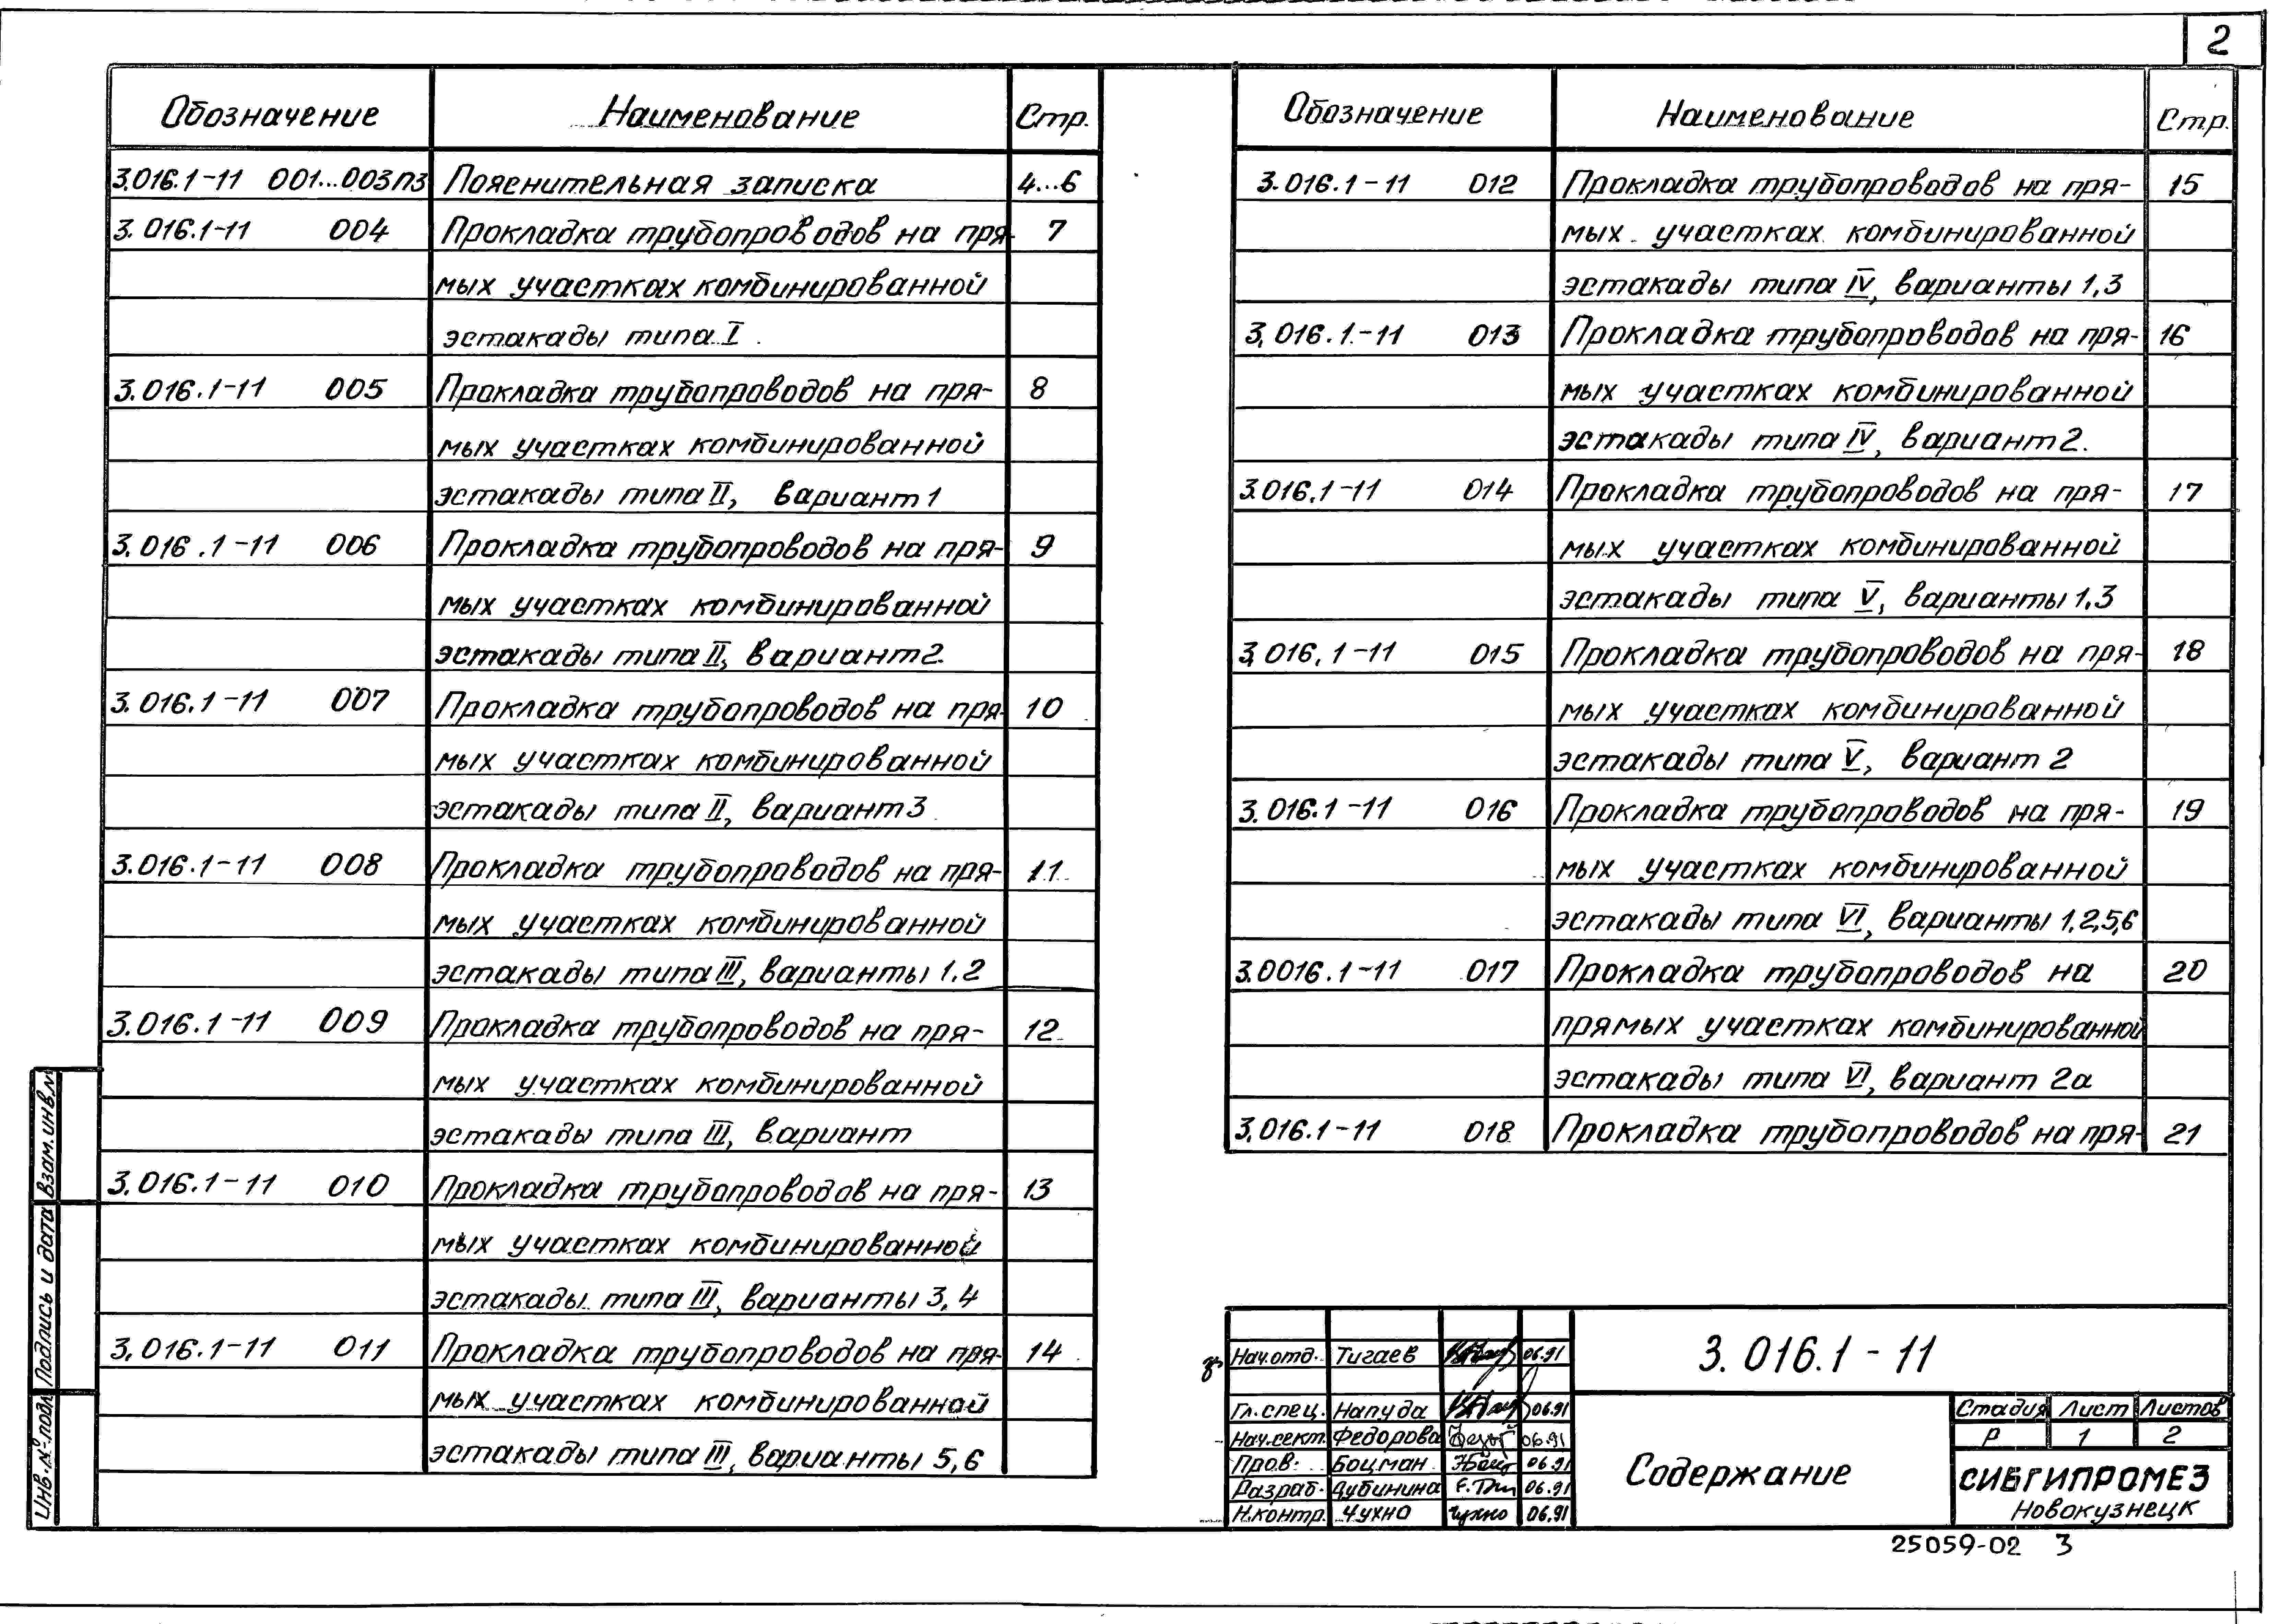 2
Обозначение Наименование Стр.
3.016.1-11 001...003ПЗ Пояснительная записка 4...6
3.016.1-11 004 Прокладка трубопроводов на пря- 7
мых участках комбинированной
эстакады типа I.
3.016.1-11 005 Прокладка трубопроводов на пря- 8
мых участках комбинированной
эстакады типа II, вариант 1
3.016.1-11 006 Прокладка трубопроводов на пря- 9
мых участках комбинированной
эстакады типа II, вариант 2.
3.016.1-11 007 Прокладка трубопроводов на пря- 10
мых участках комбинированной
эстакады типа II, вариант 3
3.016.1-11 008 Прокладка трубопроводов на пря- 11
мых участках комбинированной
эстакады типа III, варианты 1.2
3.016.1-11 009 Прокладка трубопроводов на пря- 12
мых участках комбинированной
эстакады типа III, вариант
3.016.1-11 010 Прокладка трубопроводов на пря- 13
мых участках комбинированной
эстакады типа III, варианты 3,4
3.016.1-11 011 Прокладка трубопроводов на пря- 14
мых участках комбинированной
эстакады типа III, варианты 5,6
Обозначение Наименование Стр.
3.016.1-11 012 Прокладка трубопроводов на пря- 15
мых участках комбинированной
эстакады типа IV, варианты 1,3
3.016.1-11 013 Прокладка трубопроводов на пря- 16
мых участках комбинированной
эстакады типа IV, вариант 2.
3.016.1-11 014 Прокладка трубопроводов на пря- 17
мых участках комбинированной
эстакады типа V, варианты 1,3
3.016.1-11 015 Прокладка трубопроводов на пря- 18
мых участках комбинированной
эстакады типа V, вариант 2
3.016.1-11 016 Прокладка трубопроводов на пря- 19
мых участках комбинированной
эстакады типа VI, варианты 1,2,5,6
3.0016.1-11 017 Прокладка трубопроводов на 20
прямых участках комбинированной
эстакады типа VI, вариант 2а
3.016.1-11 018 Прокладка трубопроводов на пря- 21
Взам.инв.№
Подпись и дата
Инв.№ подл
Нач.отд. Тигаев 06.91
Гл.спец. Напуда 06.91
Нач.сект. Федорова 06.91
Пров. Боцман 06.91
Разраб. Дубинина 06.91
Н.контр. Чухно Чухно 06.91
3.016.1-11
Содержание
Стадия Лист Листов
Р 1 2
СИБГИПРОМЕЗ
Новокузнецк
25059-02 3